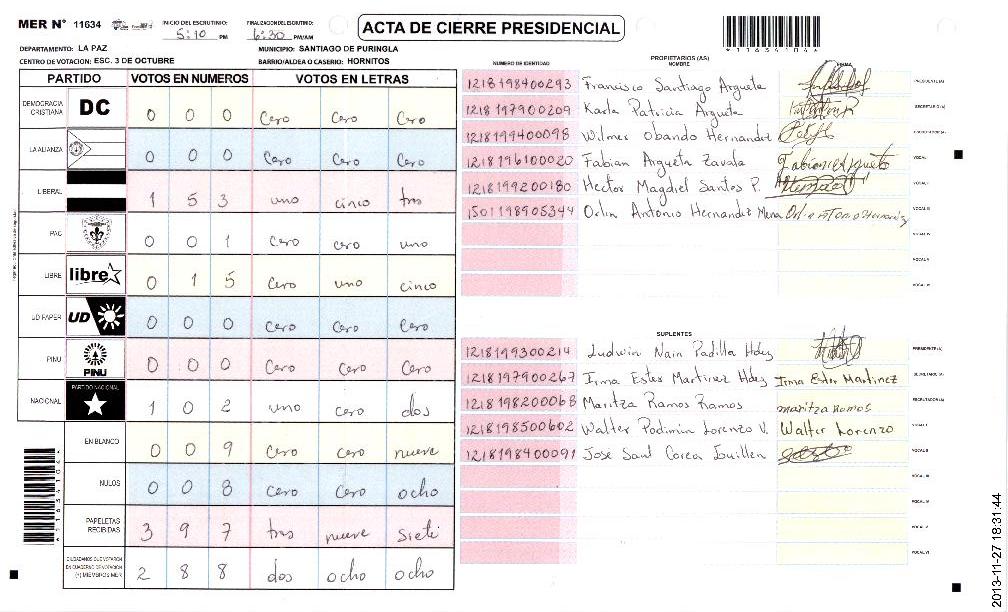 MER N° 11634
INICIO DEL ESCRUTINIO: 5:10 PM
FINALIZACION DEL ESCRUTINIO: 6:30 PM/AM
ACTA DE CIERRE PRESIDENCIAL
*11634104*
DEPARTAMENTO: LA PAZ
MUNICIPIO: SANTIAGO DE PURINGLA
CENTRO DE VOTACION: ESC. 3 DE OCTUBRE
BARRIO/ALDEA O CASERIO: HORNITOS
PARTIDO VOTOS EN NUMEROS VOTOS EN LETRAS
DEMOCRACIA CRISTIANA DC 0 0 0 Cero Cero Cero
LA ALIANZA 0 0 0 Cero Cero Cero
LIBERAL 1 5 3 uno cinco tres
PAC 0 0 1 Cero cero uno
LIBRE libre 0 1 5 Cero uno cinco
UD FAPER UD 0 0 0 Cero Cero Cero
PINU PINU 0 0 0 Cero Cero Cero
NACIONAL PARTIDO NACIONAL 1 0 2 uno cero dos
EN BLANCO 0 0 9 Cero Cero nueve
NULOS 0 0 8 cero cero ocho
PAPELETAS RECIBIDAS 3 9 7 tres nueve siete
CIUDADANOS QUE VOTARON EN CUADERNO DE VOTACION (+) MIEMBROS MER 2 8 8 dos ocho ocho
*11634104*
PROPIETARIOS (AS)
NUMERO DE IDENTIDAD NOMBRE FIRMA
1218198400293 Francisco Santiago Argueta PRESIDENTE(A)
1218197900209 Karla Patricia Argueta SECRETARIO(A)
1218199400098 Wilmer Obando Hernandez ESCRUTADOR(A)
1218196100020 Fabian Argueta Zavala Fabian Argueta VOCAL I
1218199200180 Hector Magdiel Santos P. VOCAL II
1501198905344 Orlin Antonio Hernandez Mena VOCAL III
VOCAL IV
VOCAL V
VOCAL VI
SUPLENTES
1218199300214 Ludwin Nain Padilla Hdez PRESIDENTE(A)
1218197900267 Irma Ester Martinez Hdez Irma Ester Martinez SECRETARIO(A)
1218198200068 Maritza Ramos Ramos maritza Ramos ESCRUTADOR(A)
1218198500602 Walter Lorenzo V. Walter Lorenzo VOCAL I
1218198400091 Jose Saul Corea VOCAL II
VOCAL III
VOCAL IV
VOCAL V
VOCAL VI
2013-11-27 18:31:44